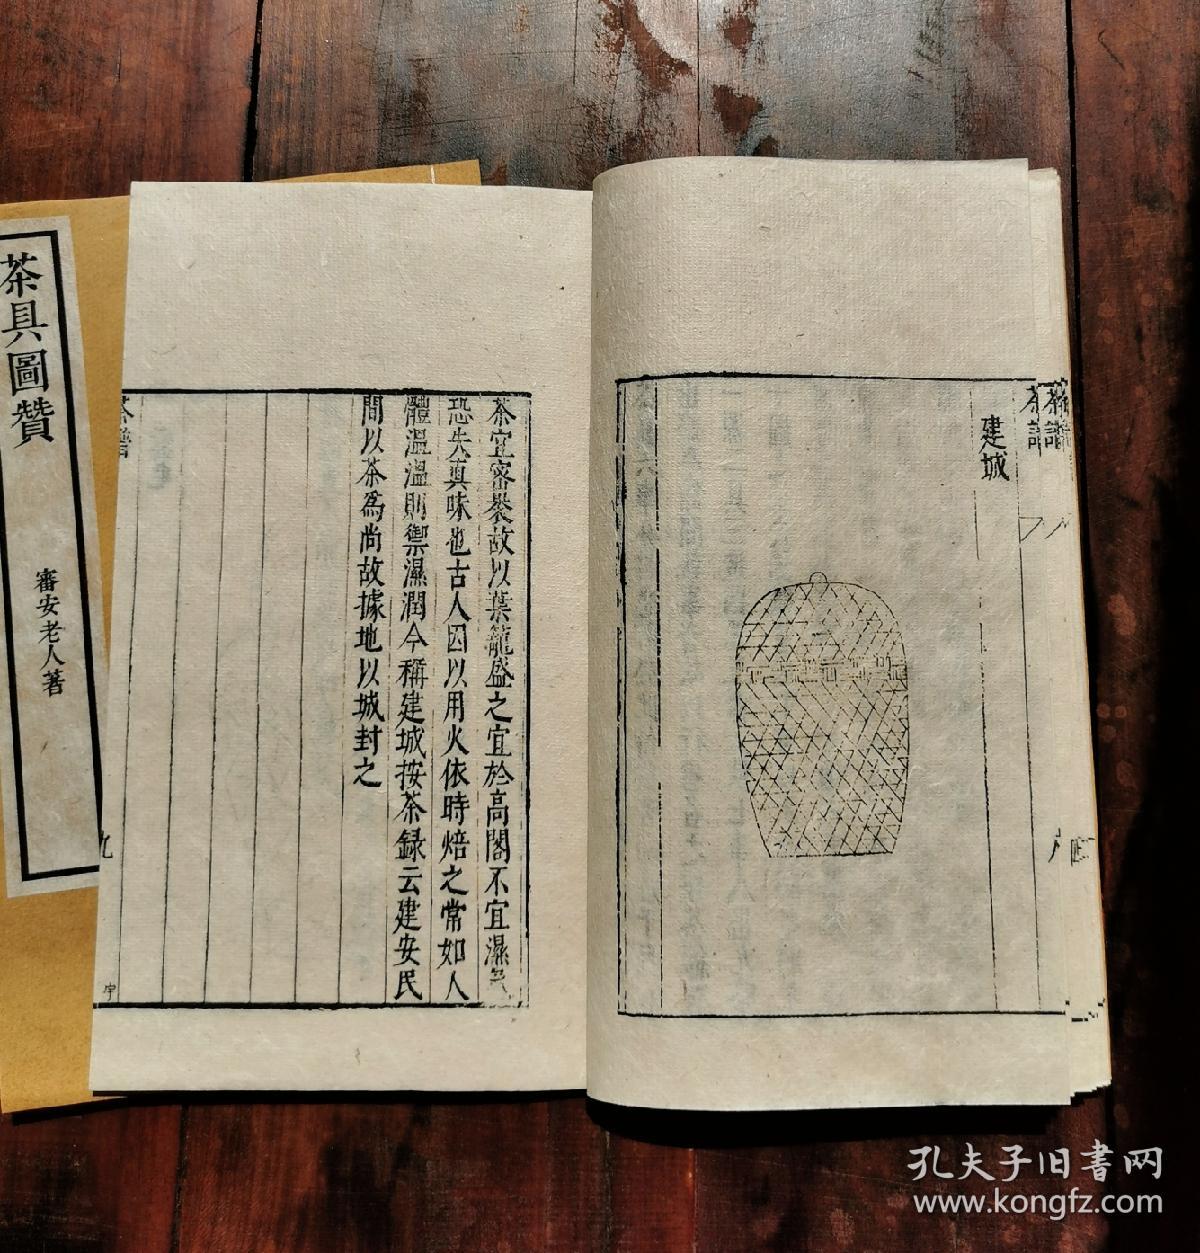 茶譜
建城
茶宜密褁故以蒻籠盛之宜於高閣不宜濕氣
恐失真味也古人因以用火依時焙之常如人
體温温則禦濕潤今稱建城按茶録云建安民
間以茶爲尚故據地以城封之
茶譜
九
宇
茶具圖贊
審安老人著
孔夫子旧書网
www.kongfz.com